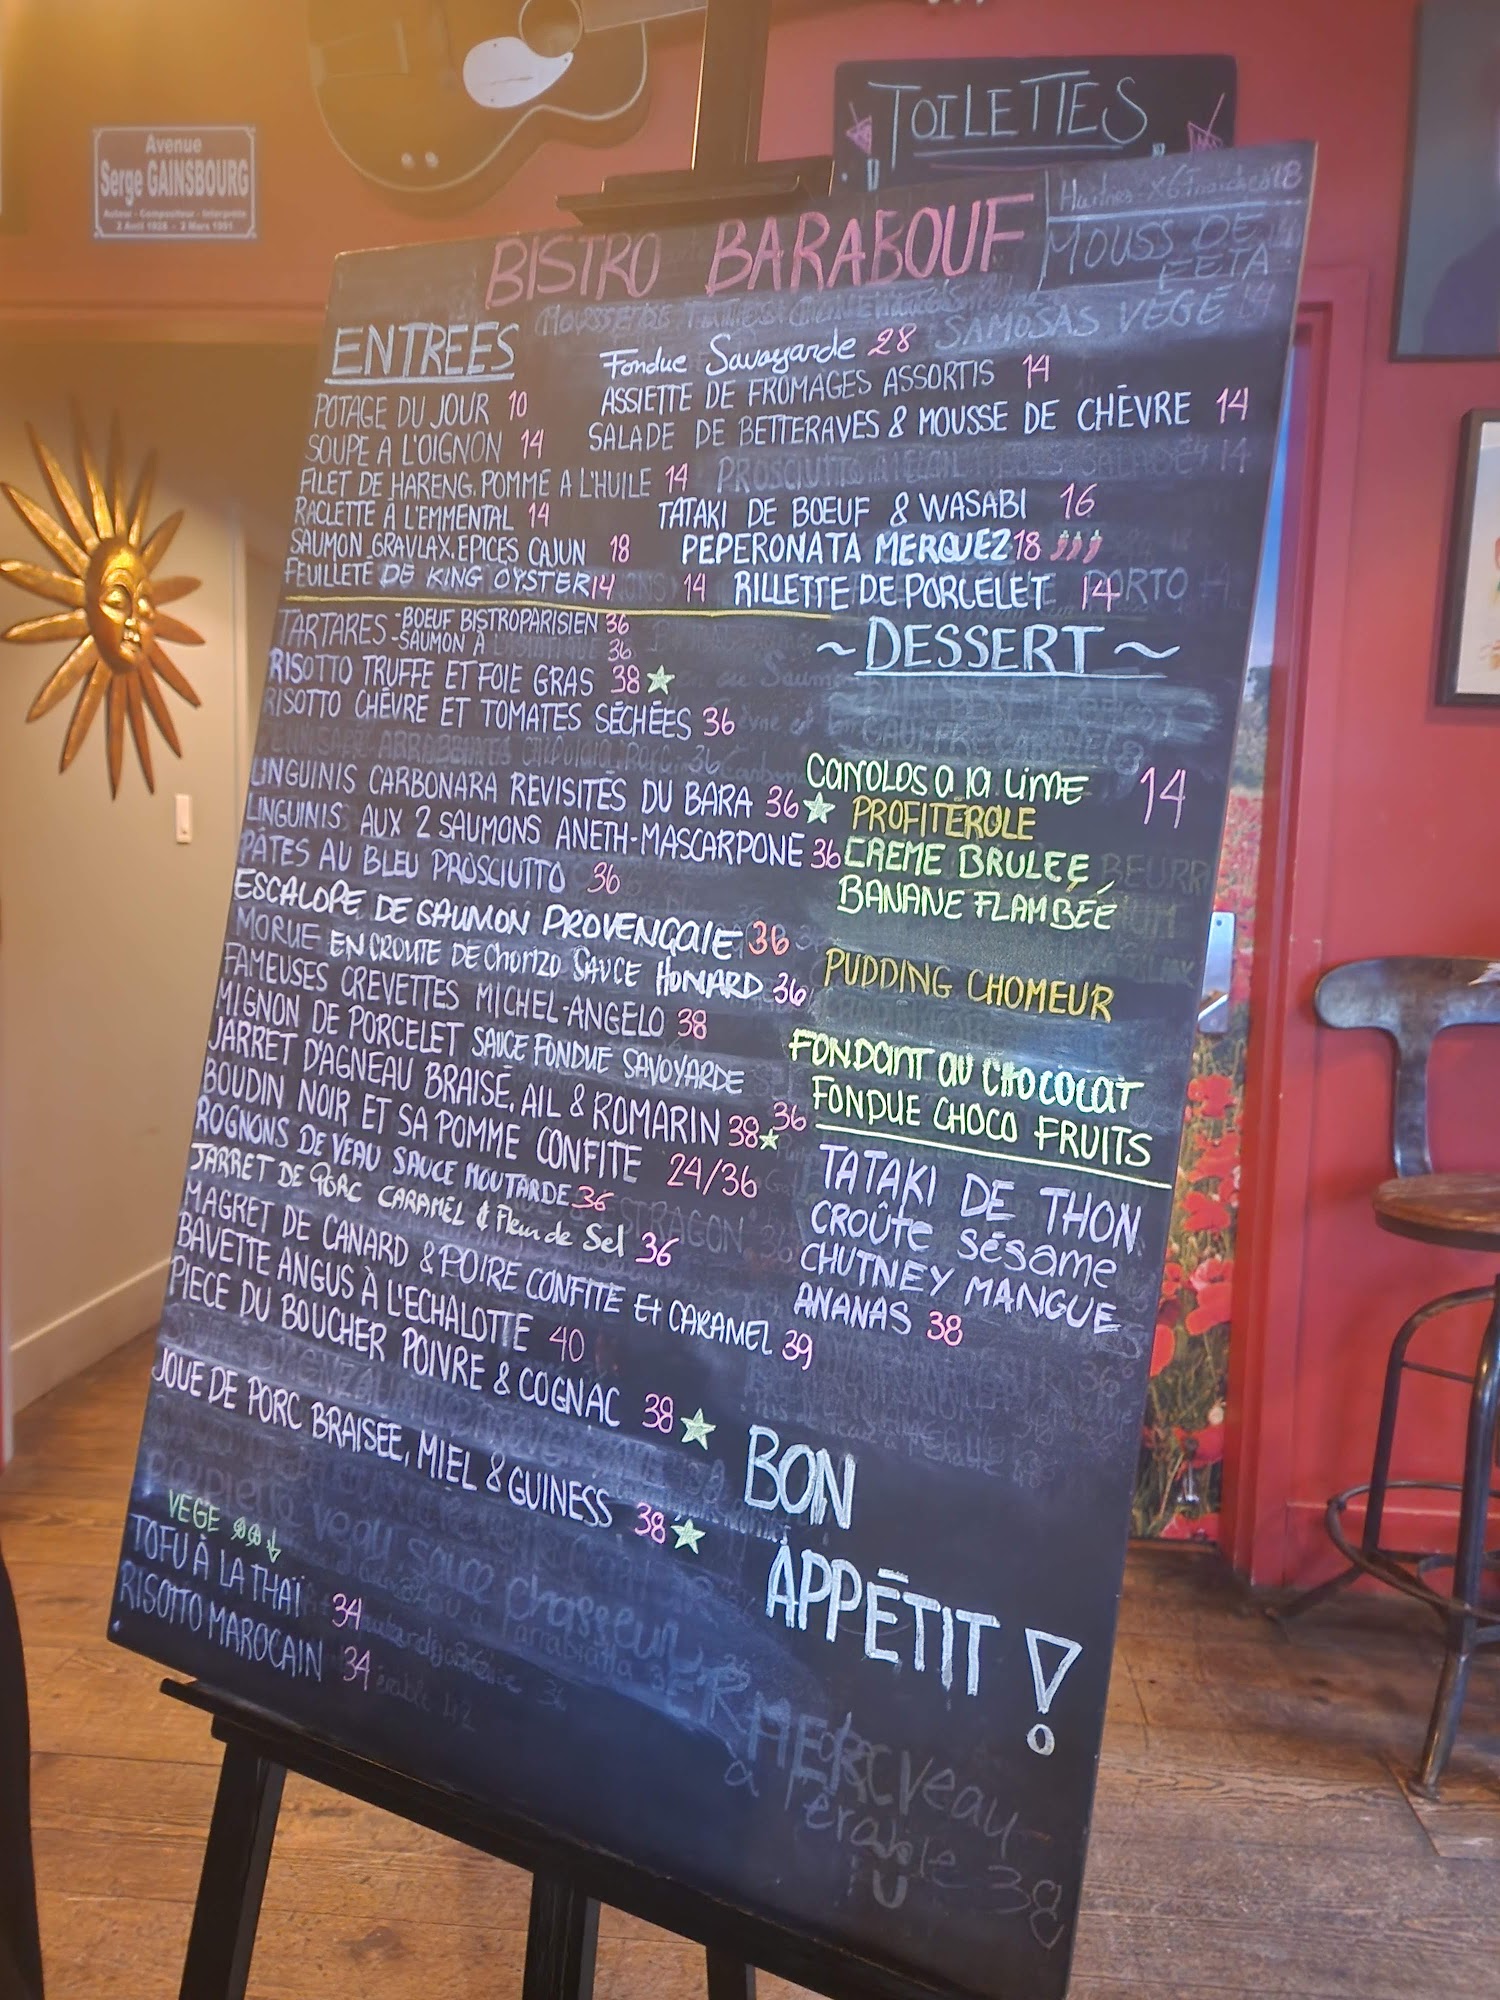 Avenue
Serge GAINSBOURG
Auteur - Compositeur - Interprète
2 Avril 1928 - 2 Mars 1991
TOILETTES
BISTRO BARABOUF
Huitres x6 Fraiches 18
MOUSS DE
FETA 14
SAMOSAS VÉGÉ 14
ENTREES
POTAGE DU JOUR 10
SOUPE A L'OIGNON 14
FILET DE HARENG. POMME A L'HUILE 14
RACLETTE À L'EMMENTAL 14
SAUMON GRAVLAX. EPICES CAJUN 18
FEUILLETÉ DE KING OYSTER 14
Fondue Savoyarde 28
ASSIETTE DE FROMAGES ASSORTIS 14
SALADE DE BETTERAVES & MOUSSE DE CHÈVRE 14
TATAKI DE BOEUF & WASABI 16
PEPERONATA MERQUEZ 18
14 RILLETTE DE PORCELET 14
TARTARES - BOEUF BISTROPARISIEN 36
- SAUMON À 36
RISOTTO TRUFFE ET FOIE GRAS 38
RISOTTO CHÈVRE ET TOMATES SÉCHÉES 36
LINGUINIS CARBONARA REVISITÉS DU BARA 36
LINGUINIS AUX 2 SAUMONS ANETH-MASCARPONE 36
PÂTES AU BLEU PROSCIUTTO 36
ESCALOPE DE SAUMON PROVENÇAlE 36
MORUE EN CROUTE DE CHORIZO SAUCE HOMARD 36
FAMEUSES CREVETTES MICHEL-ANGELO 38
MIGNON DE PORCELET SAUCE FONDUE SAVOYARDE 36
JARRET D'AGNEAU BRAISÉ, AIL & ROMARIN 38
BOUDIN NOIR ET SA POMME CONFITE 24/36
ROGNONS DE VEAU SAUCE MOUTARDE 36
JARRET DE PORC CARAMEL & Fleur de Sel 36
MAGRET DE CANARD & POIRE CONFITE Et CARAMEL 39
BAVETTE ANGUS À L'ECHALOTTE 40
PIECE DU BOUCHER POIVRE & COGNAC 38
JOUE DE PORC BRAISEE, MIEL & GUINESS 38
VEGE
TOFU À LA THAÏ 34
RISOTTO MAROCAIN 34
~ DESSERT ~
CANOLOS a la LIME 14
PROFITÉROLE
CREME BRULEE
BANANE FLAMBÉE
PUDDING CHOMEUR
FONDANT AU CHOCOLAT
FONDUE CHOCO FRUITS
TATAKI DE THON
CROÛTE SÉSAME
CHUTNEY MANGUE
ANANAS 38
BON
APPÉTIT !